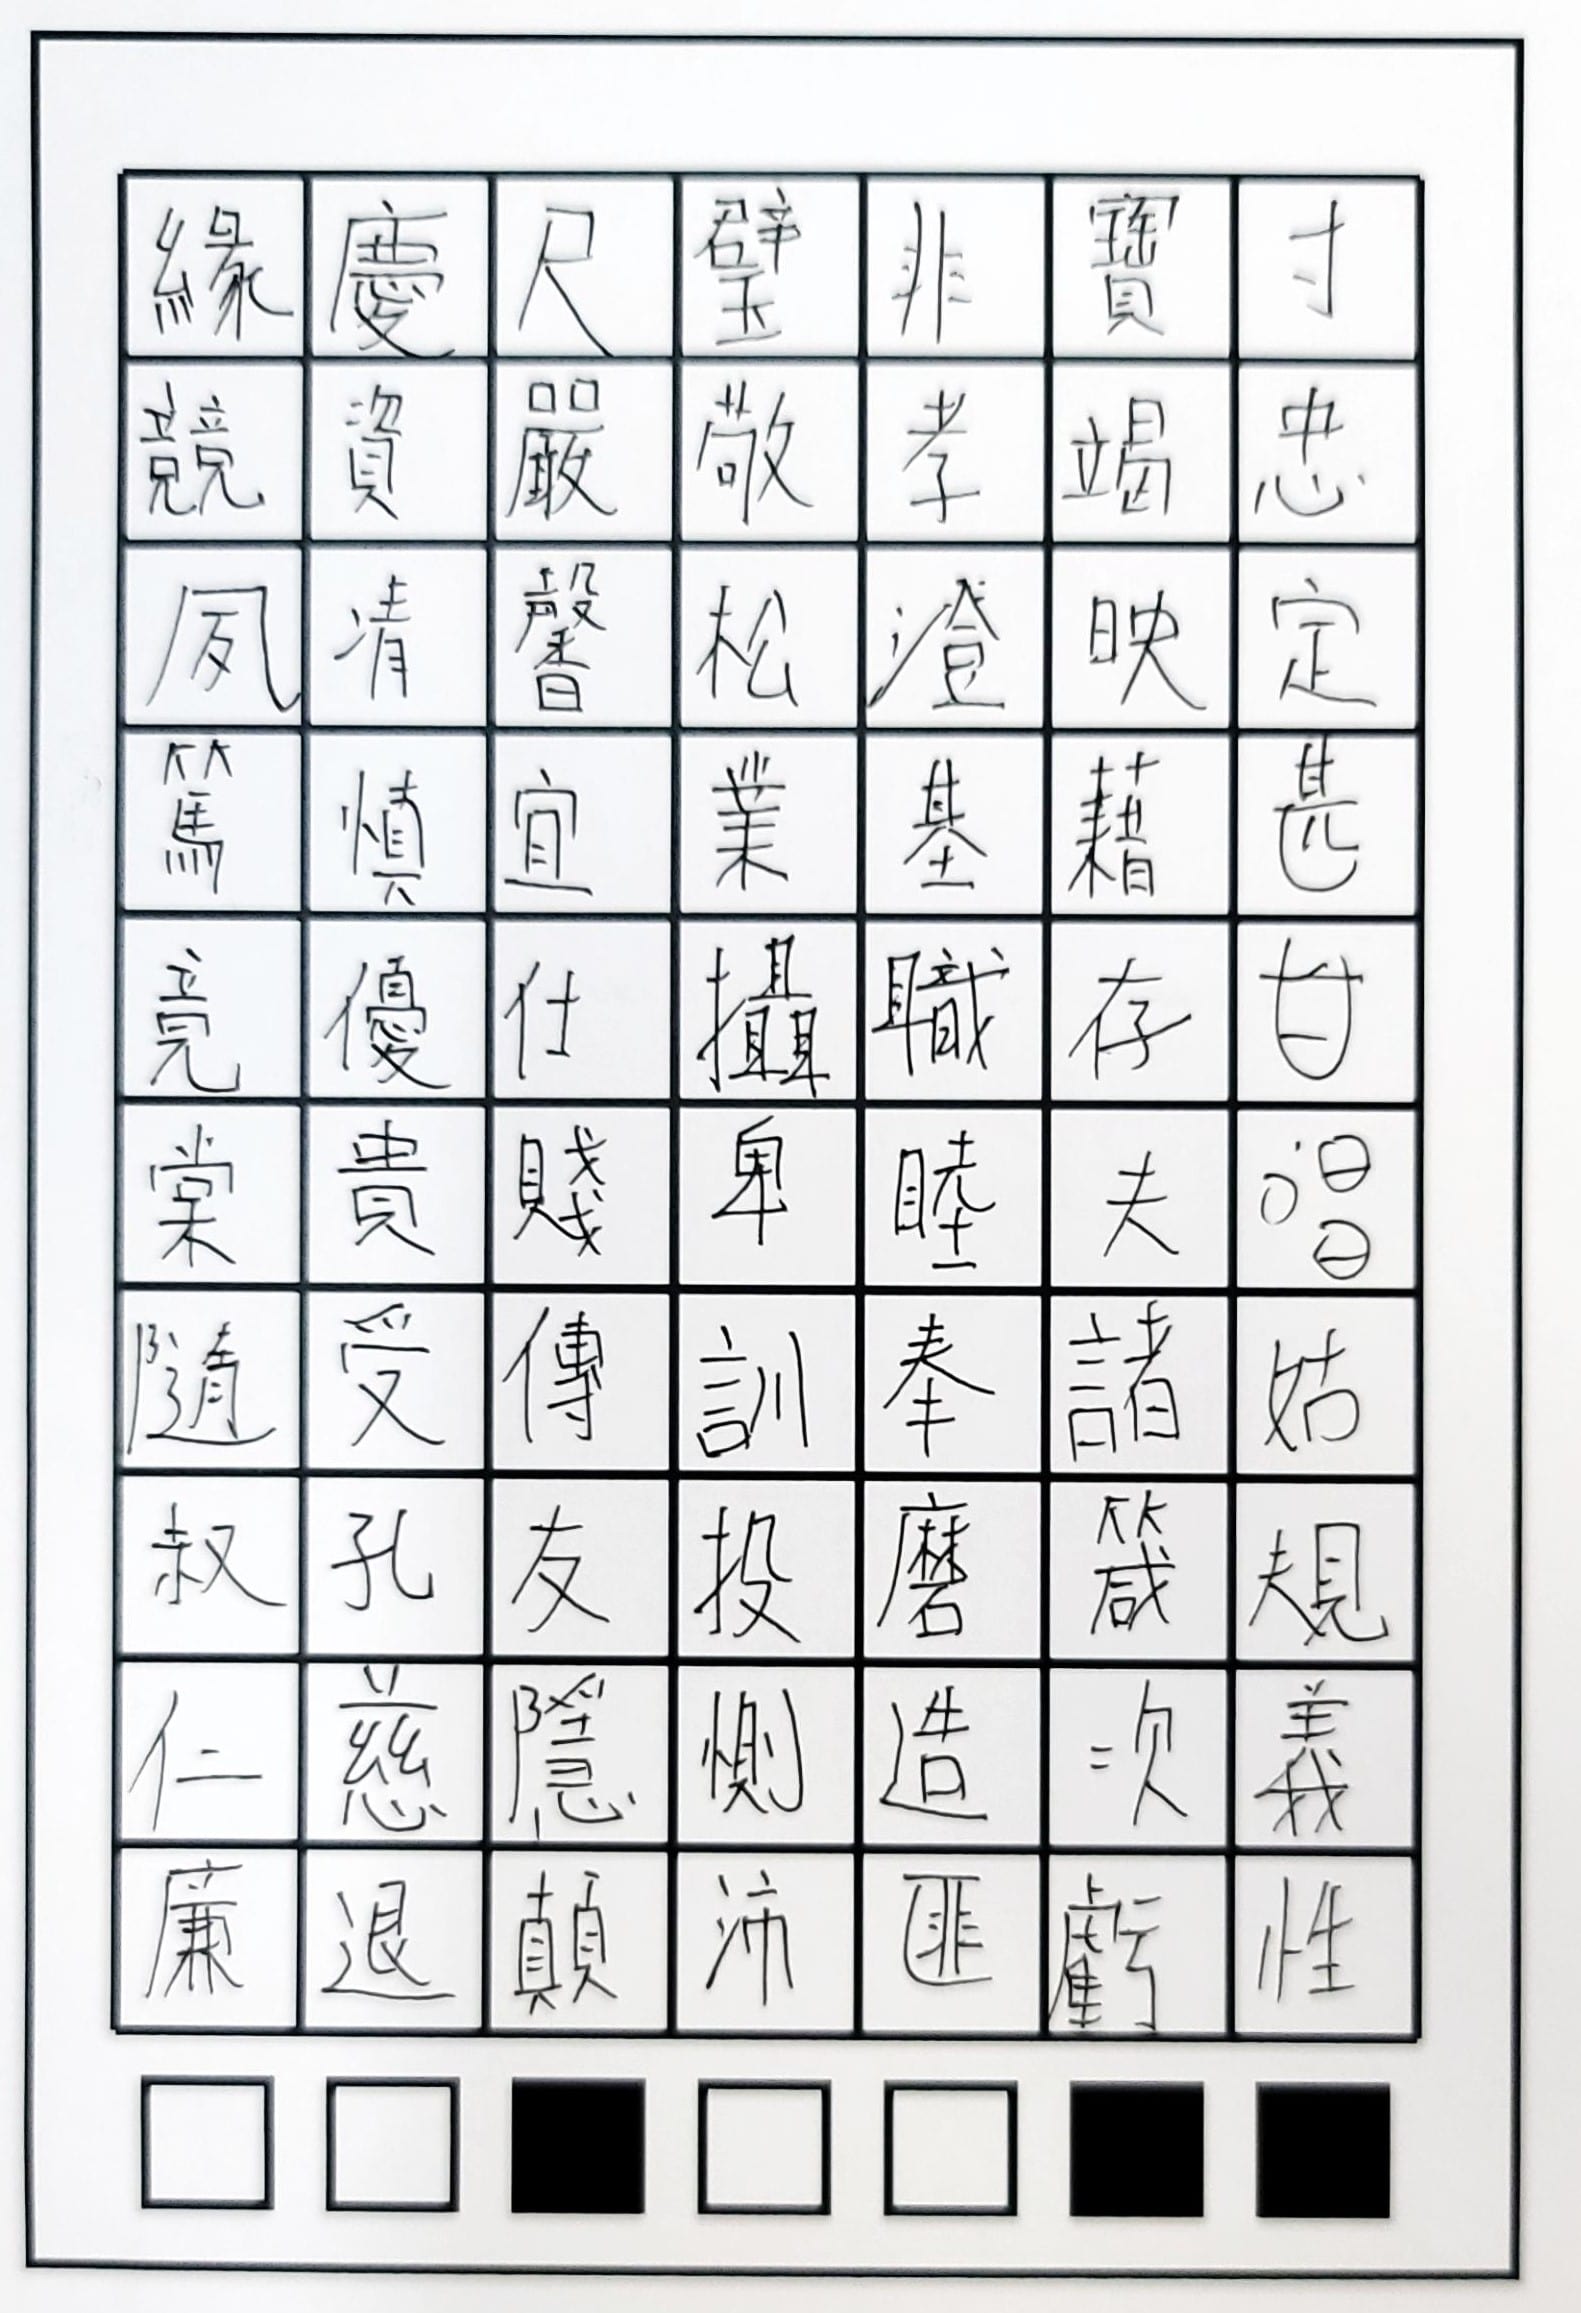 緣慶尺璧非寶寸
競資嚴敬孝竭忠
夙凊馨松澄映定
篤慎宜業基藉甚
竟優仕攝職存甘
棠貴賤卑睦夫唱
隨受傳訓奉諸姑
叔孔友投磨箴規
仁慈隱惻造次義
廉退顛沛匪虧性